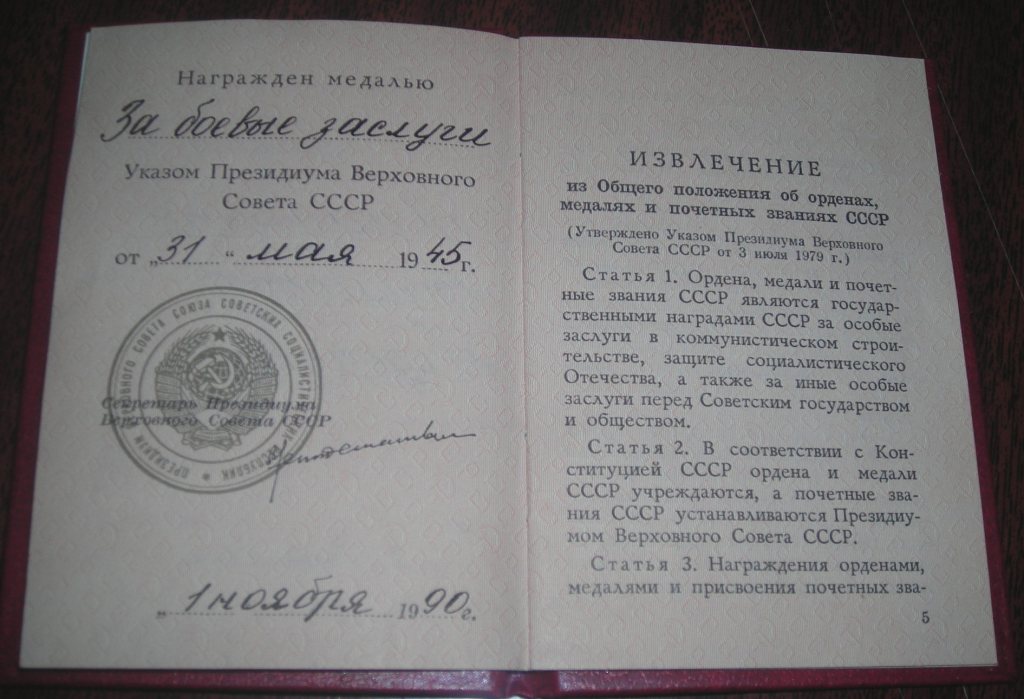 Награжден медалью
За боевые заслуги
Указом Президиума Верховного
Совета СССР
от „31“ мая 1945г.
ПРЕЗИДИУМ ВЕРХОВНОГО СОВЕТА СОЮЗА СОВЕТСКИХ СОЦИАЛИСТИЧЕСКИХ РЕСПУБЛИК
Секретарь Президиума
Верховного Совета СССР
„1 ноября 1990г.
ИЗВЛЕЧЕНИЕ
из Общего положения об орденах,
медалях и почетных званиях СССР
(Утверждено Указом Президиума Верховного
Совета СССР от 3 июля 1979 г.)
Статья 1. Ордена, медали и почет-
ные звания СССР являются государ-
ственными наградами СССР за особые
заслуги в коммунистическом строи-
тельстве, защите социалистического
Отечества, а также за иные особые
заслуги перед Советским государством
и обществом.
Статья 2. В соответствии с Кон-
ституцией СССР ордена и медали
СССР учреждаются, а почетные зва-
ния СССР устанавливаются Президиу-
мом Верховного Совета СССР.
Статья 3. Награждения орденами,
медалями и присвоения почетных зва-
5